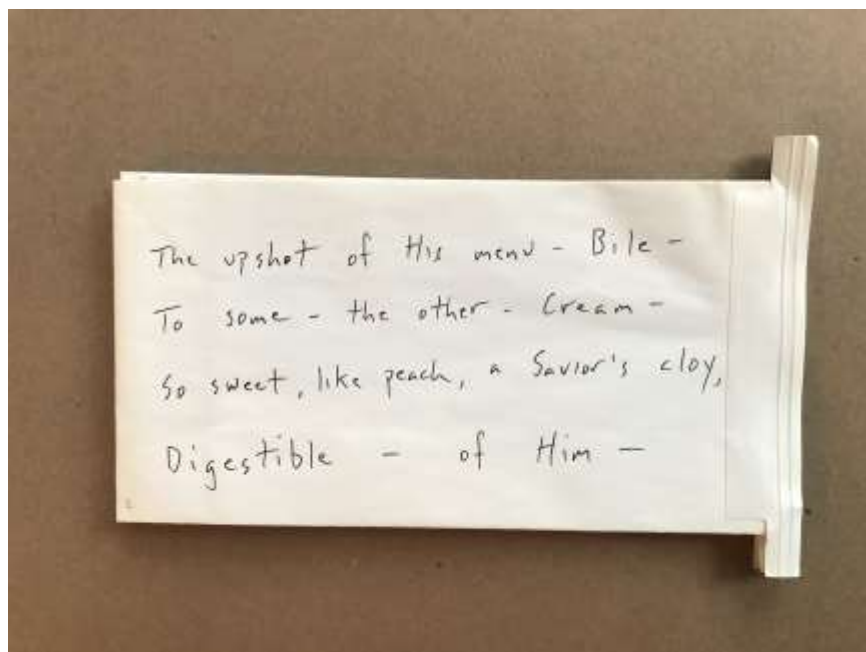 The upshot of His menu - Bile -
To some - the other - Cream -
So sweet, like peach, a Savior's cloy,
Digestible - of Him -